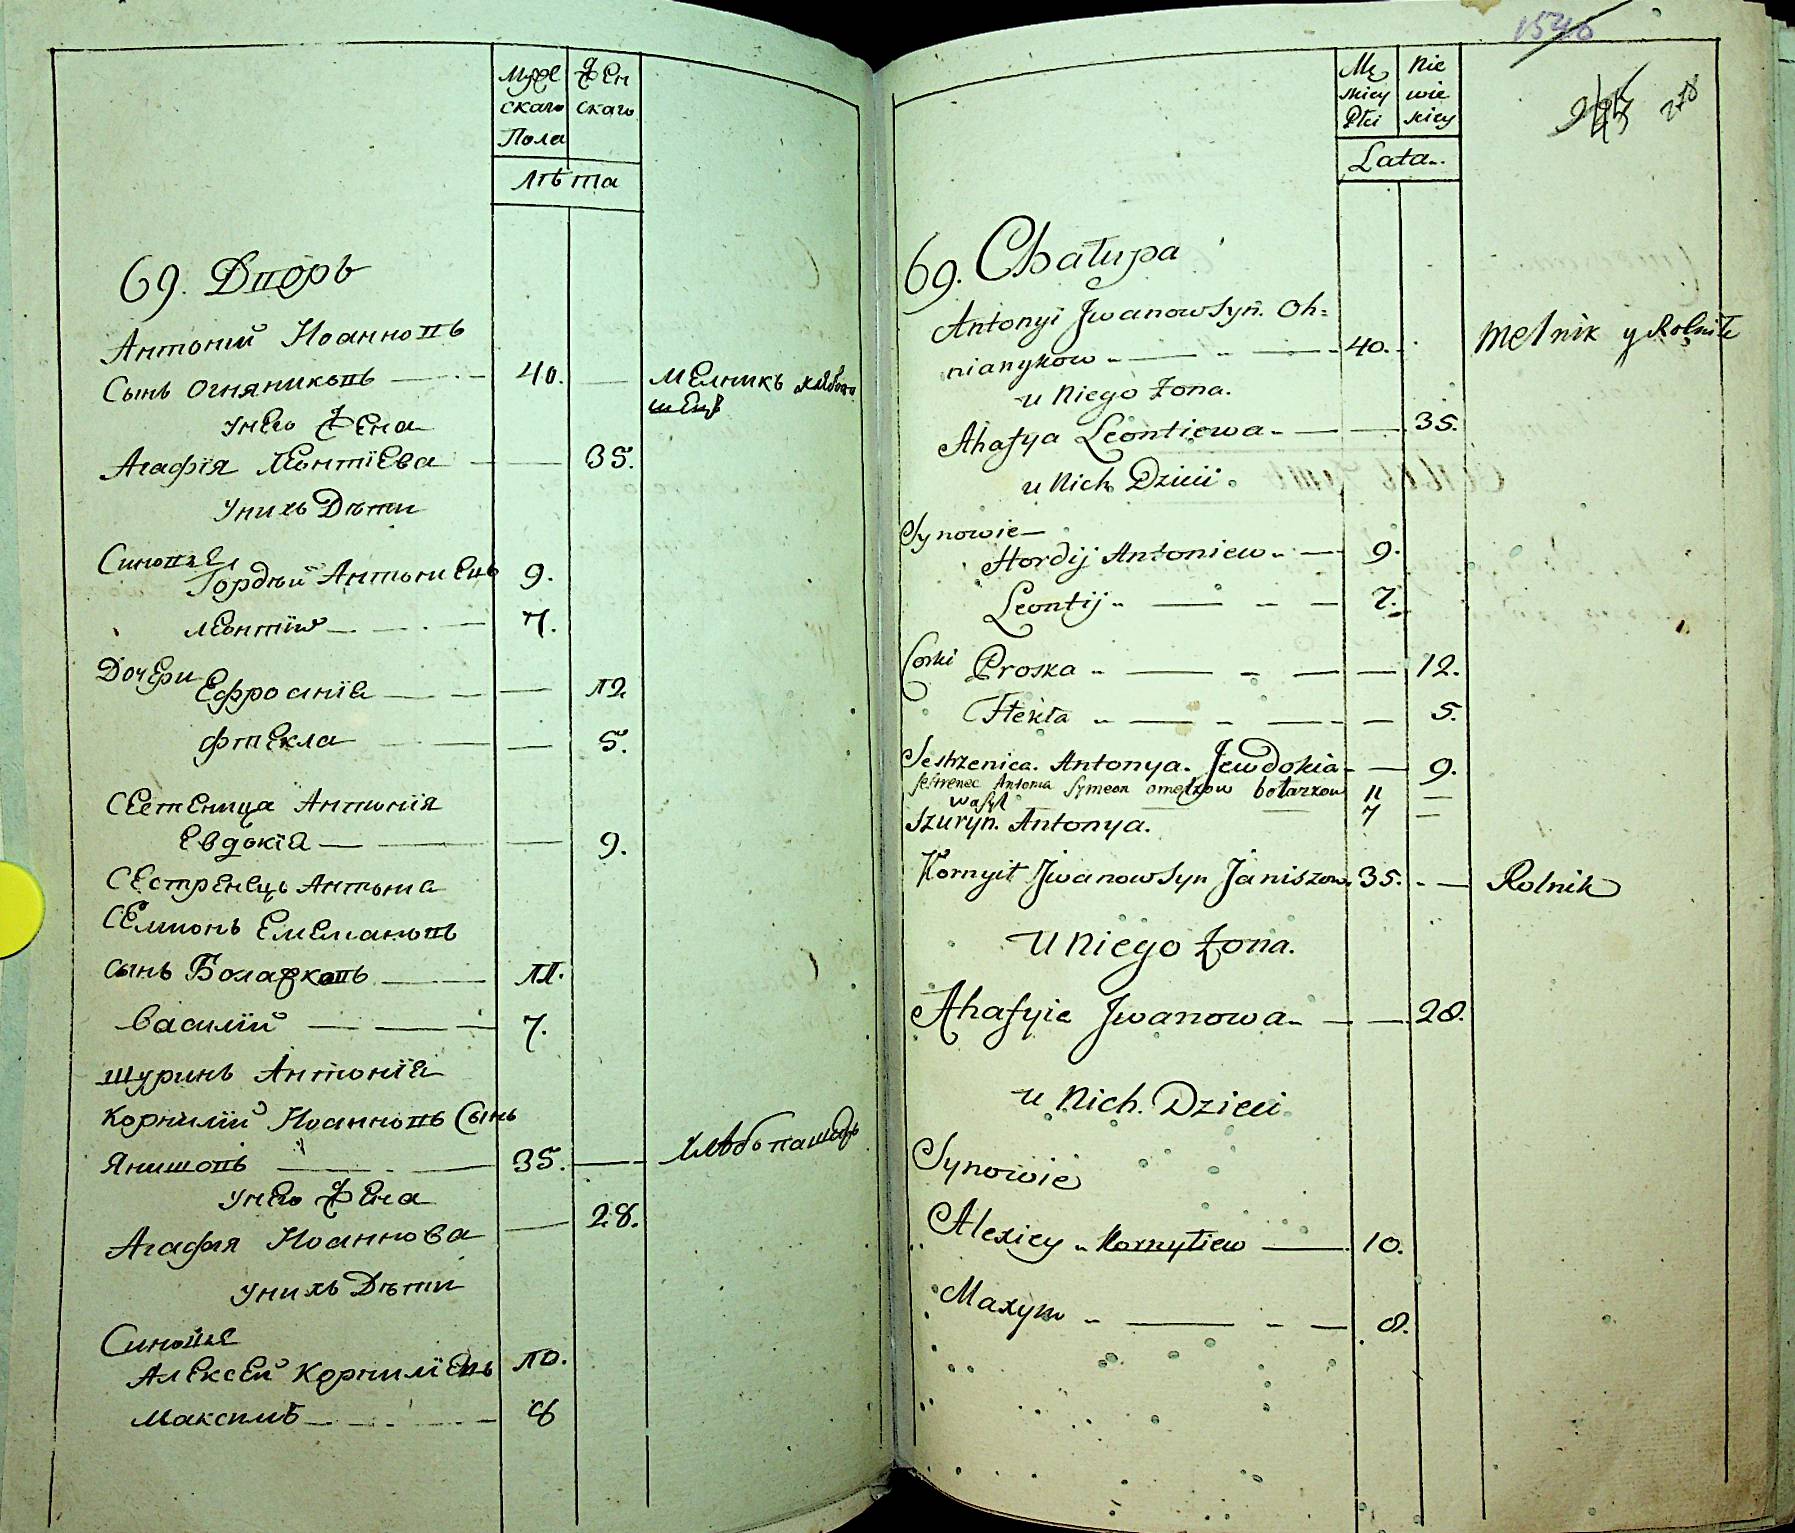 Муже
скаго
Пола
Жен
скаго
Лѣта
69. Дворъ
Антоній Иоанновъ
Сынъ Огняниковъ 40.
Мелникъ хлѣбопа
шецъ
Унего Жена
Агафія Леонтіева 35.
Унихъ Дѣти
Синовья
Гордѣй Антониевъ 9.
Леонтій 7.
Дочери
Ефросинія 12
Фтекла 5.
Сестеница Антонія
Евдокія 9.
Сестренецъ Антонія
Семионъ Емелiановъ
сынъ Боларковъ 11.
Василій 7.
шуринъ Антонія
Корнилій Иоанновъ Сынъ
Янишовъ 35. хлѣбопашецъ
Унего Жена
Агафия Иоаннова 28.
Унихъ Дѣти
Синовья
Алексей Корниліевъ 10.
Максимъ 8
1540
278
Mę
skiey
Płci
Nie
wie
skiey
Lata
69. Chałupa
Antonyi Jwanow Syn. Oh=
nianykow 40. Melnik y Rolnik
u Niego Żona.
Ahafya Leontiewa 35.
u Nich Dzieci
Synowie
Hordij Antoniew 9.
Leontij 7.
Corki Proska 12.
Ftekła 5.
Sestrzenica. Antonya. Jewdokia 9.
Sestrenec Antonia Symeon Omelkow bolarkow 11
Wasyl 7
Szuryn. Antonya.
Kornyił Jwanow Syn Janiszow. 35. Rolnik
U Niego Żona.
Ahafyia Jwanowa 28.
u Nich. Dzieci
Synowie
Alexiey Kornyłiew 10.
Maxym 8.